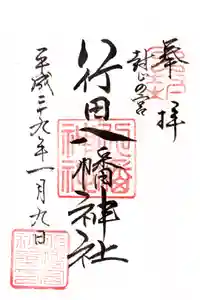 奉拝
封じの宮
行田八幡神社
平成二九年一月九日